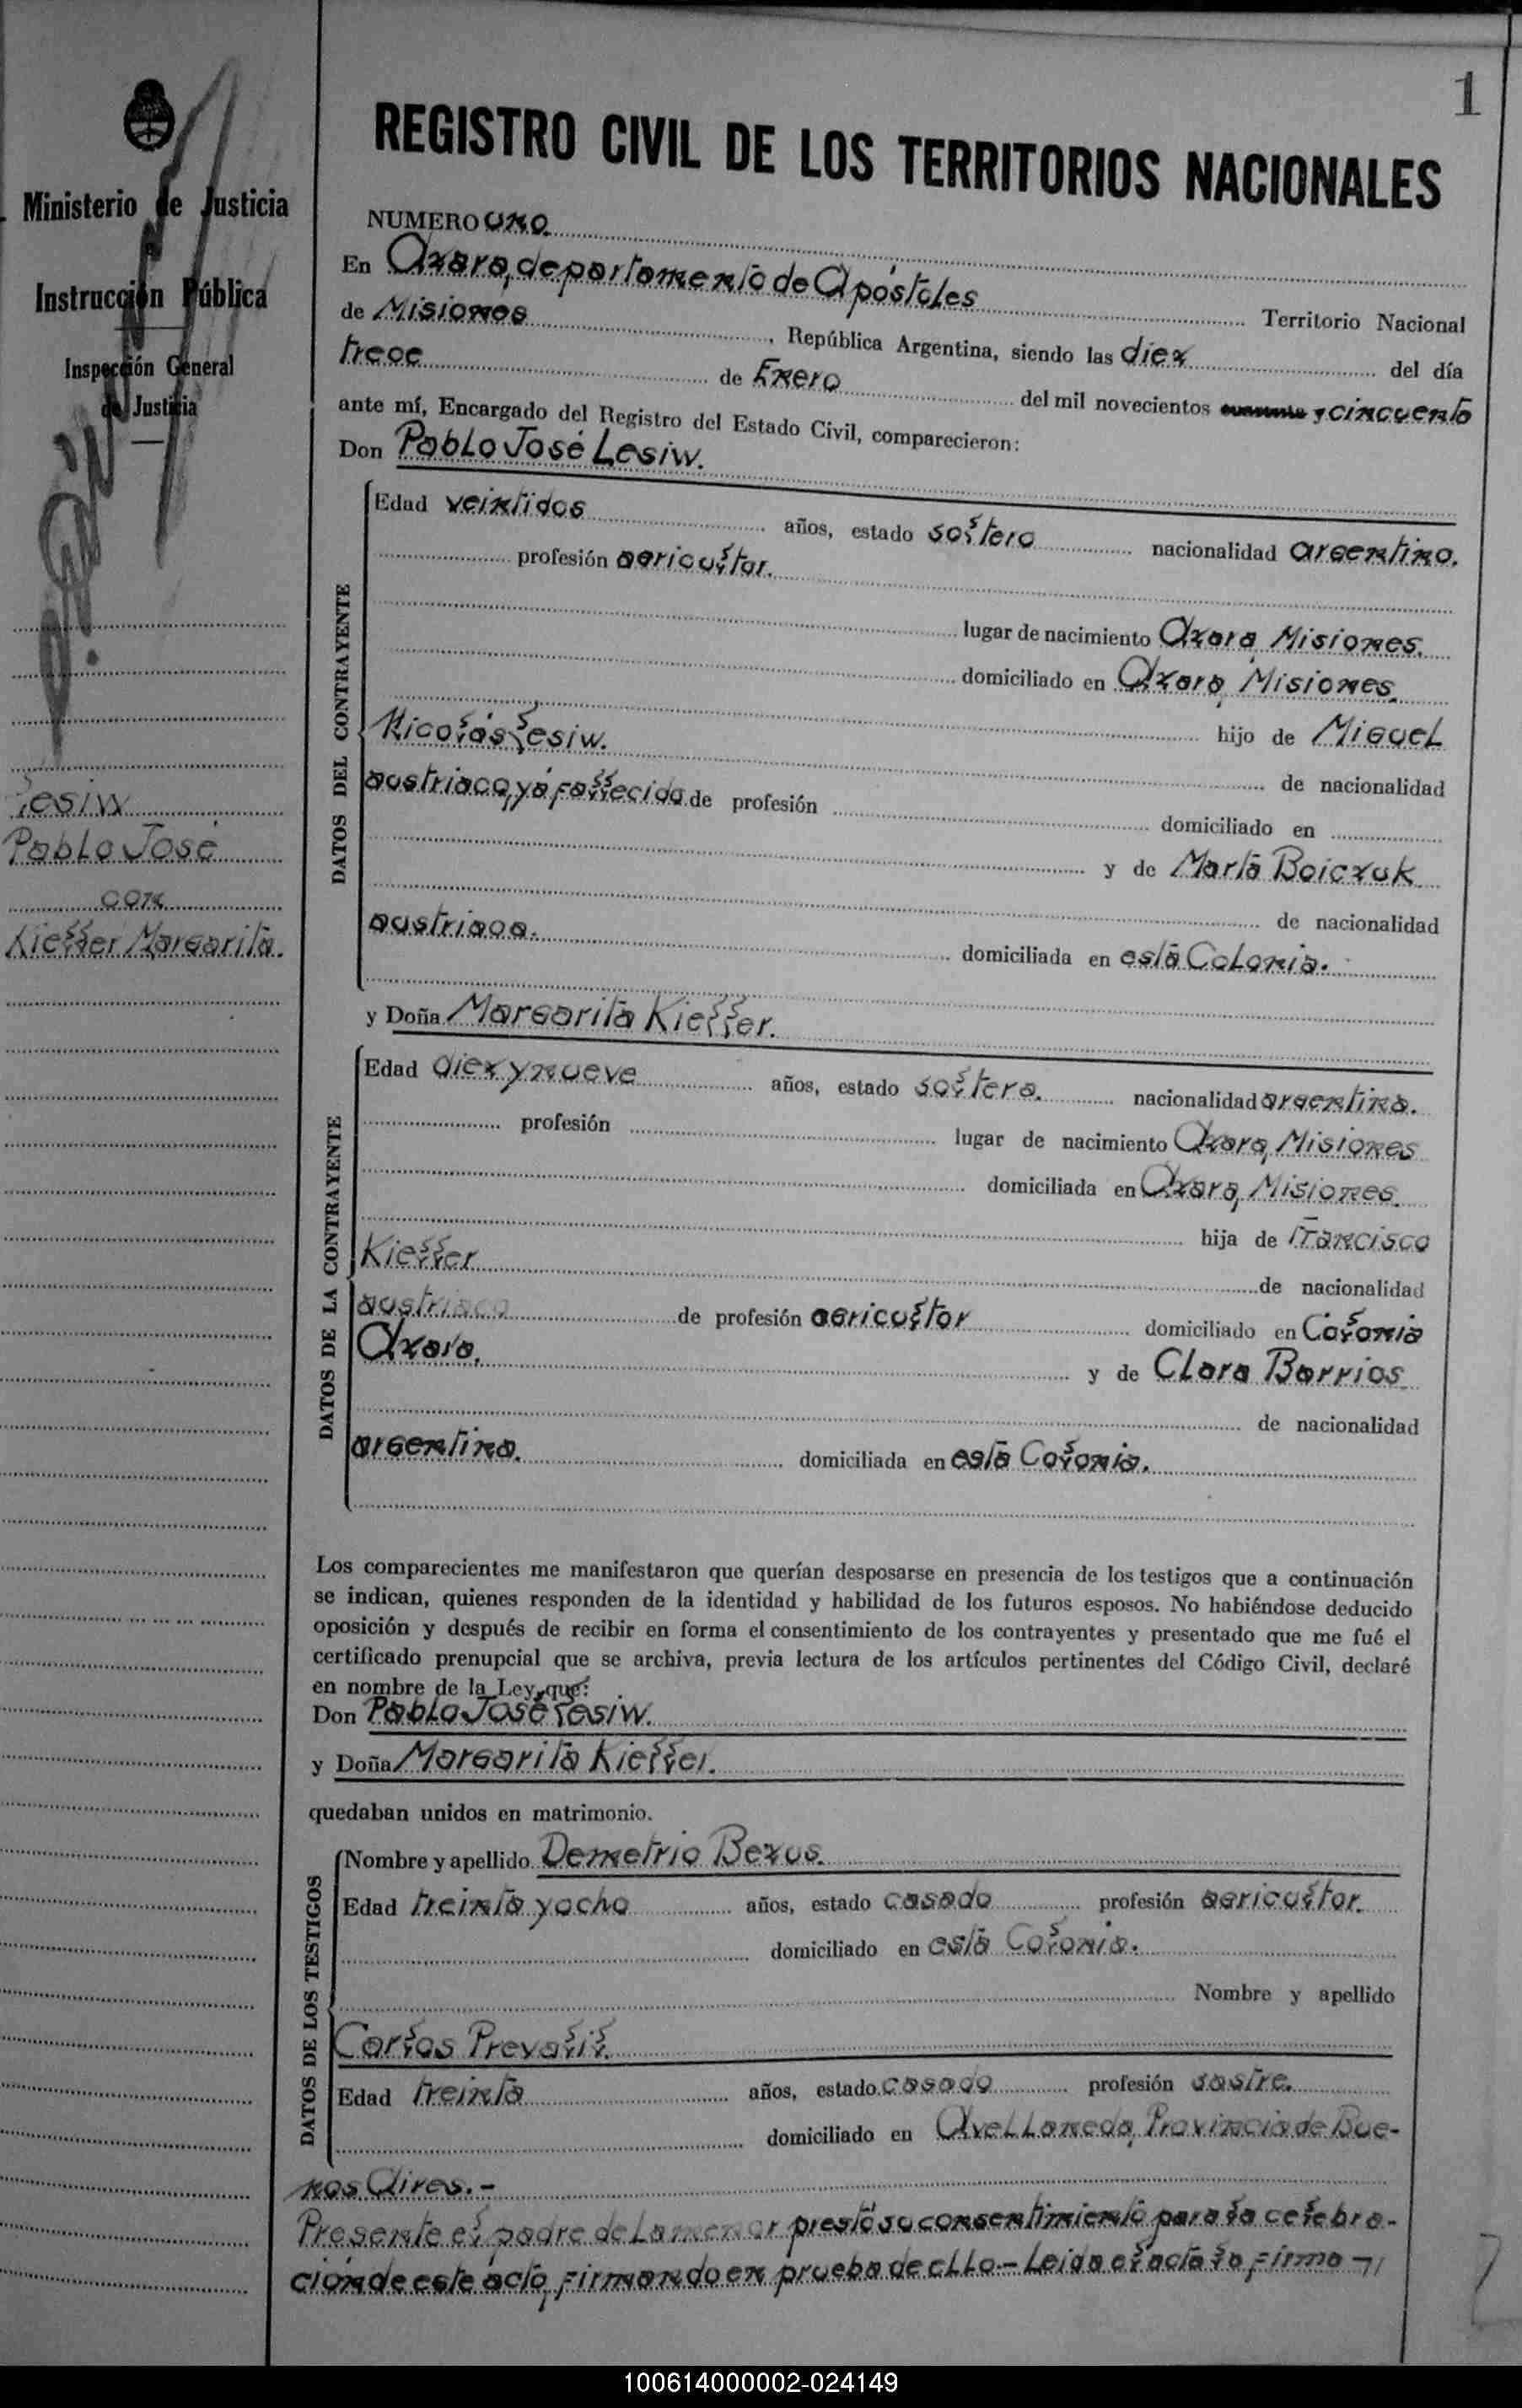 1
Ministerio de Justicia
e
Instrucción Pública
Inspección General
de Justicia
Lesiw
Pablo José
con
Kieller Margarita.
REGISTRO CIVIL DE LOS TERRITORIOS NACIONALES
NUMERO uno
En Azara, departamento de Apóstoles
de Misiones Territorio Nacional
, República Argentina, siendo las diez del día
trece de Enero del mil novecientos cuarenta y cincuenta
ante mí, Encargado del Registro del Estado Civil, comparecieron:
Don Pablo José Lesiw.
DATOS DEL CONTRAYENTE
Edad veintidos años, estado soltero nacionalidad argentino.
profesión agricultor.
lugar de nacimiento Azara, Misiones.
domiciliado en Azara, Misiones.
hijo de Miguel
Nicolás Lesiw. de nacionalidad
austriaco, ya fallecido de profesión domiciliado en
y de Marta Boiczuk
de nacionalidad
austriaca. domiciliada en esta Colonia.
y Doña Margarita Kieller.
DATOS DE LA CONTRAYENTE
Edad diez y nueve años, estado soltera. nacionalidad argentina.
profesión lugar de nacimiento Azara, Misiones
domiciliada en Azara, Misiones.
hija de Francisco
Kieller de nacionalidad
austriaco de profesión agricultor domiciliado en Colonia
Azara. y de Clara Barrios
de nacionalidad
argentina. domiciliada en esta Colonia.
Los comparecientes me manifestaron que querían desposarse en presencia de los testigos que a continuación
se indican, quienes responden de la identidad y habilidad de los futuros esposos. No habiéndose deducido
oposición y después de recibir en forma el consentimiento de los contrayentes y presentado que me fué el
certificado prenupcial que se archiva, previa lectura de los artículos pertinentes del Código Civil, declaré
en nombre de la Ley, que:
Don Pablo José Lesiw.
y Doña Margarita Kieller.
quedaban unidos en matrimonio.
DATOS DE LOS TESTIGOS
Nombre y apellido Demetrio Bezus.
Edad treinta y ocho años, estado casado profesión agricultor.
domiciliado en esta Colonia.
Nombre y apellido
Carlos Prevalil.
Edad treinta años, estado casado profesión sastre.
domiciliado en Avellaneda, Provincia de Bue-
nos Aires.-
Presente el padre de la menor prestó su consentimiento para la celebra-
ción de este acto, firmando en prueba de ello.- Leida el acta la firma-
100614000002-024149